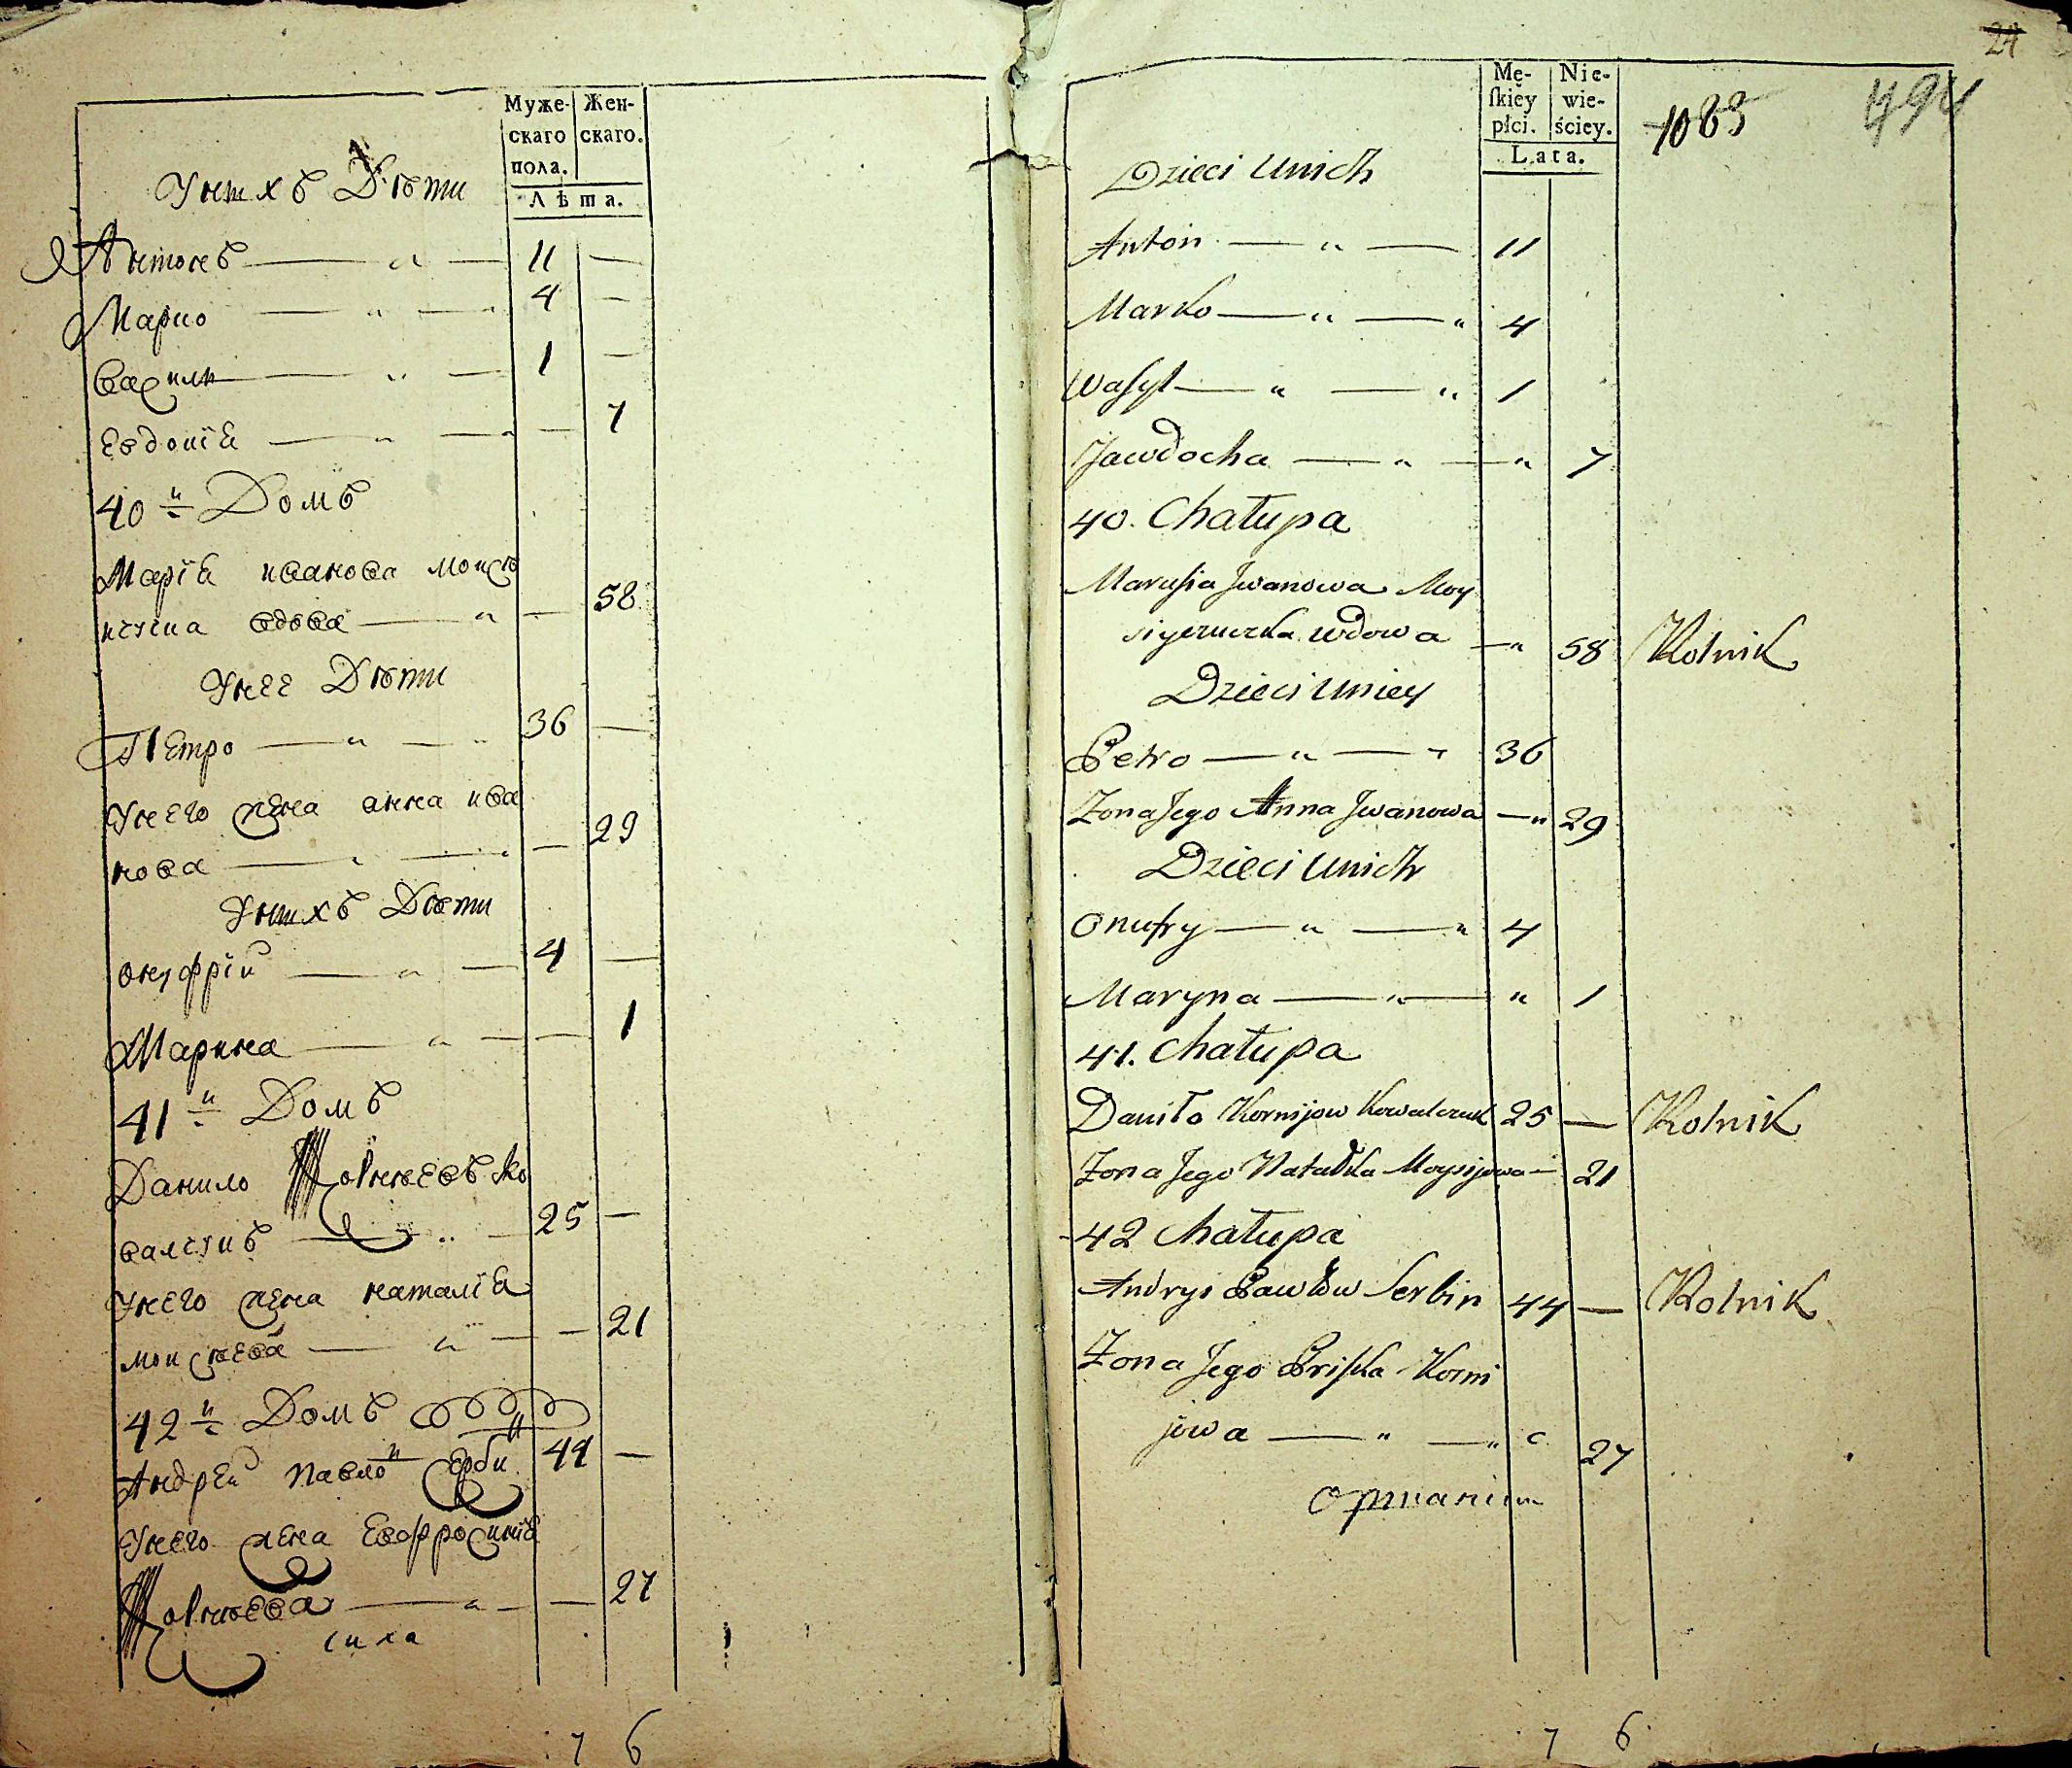 Муже-
скаго
пола.
Жен-
скаго.
Лѣта.
Унихъ Дѣти
Антонъ — " — 11 —
Марко — " — 4 —
Василь — " — 1 —
Евдокїя — " — " — 7
40й Домъ
Марїя иванова мойсѣ
йчучка вдова — " — 58
Унее Дѣти
Петро — " — " 36 —
Унего жена анна ива
нова — " — " — 29
Унихъ Дѣти
онуфрїй — " — 4 —
Марина — " — — 1
41й Домъ
Данило Корнѣевъ Ко
валчукъ — " — 25 —
Унего жена наталїя
мойсѣева — " — — 21
42й Домъ
Андрей Павло Серби 44 —
Унего жена Евфросинїя
Корнѣева — " — — 27
7 6
24
Mę-
ſkiéy
płci.
Nie-
wie-
ściey.
Lata.
1083
494
Dzieci Unich
Anton — " — 11
Marko — " — " 4
Wasyl — " — " 1
Jawdocha — " — " 7
40. Chałupa
Marusia Jwanowa Moy
wdowa — " 58 Rolnik
Dzieci Uniey
Petro — " — " 36
Żona Jego Anna Jwanowa — " 29
Dzieci Unich
Onufry — " — " 4
Maryna — " — " 1
41. Chałupa
Daniło Kornijow Kowalczuk 25 — Rolnik
Żona Jego Natałka Moysijowa — 21
42 Chałupa
Andrys Pawłow Serbin 44 — Rolnik
Żona Jego Priska Korni
jowa — " — " 27
7 6